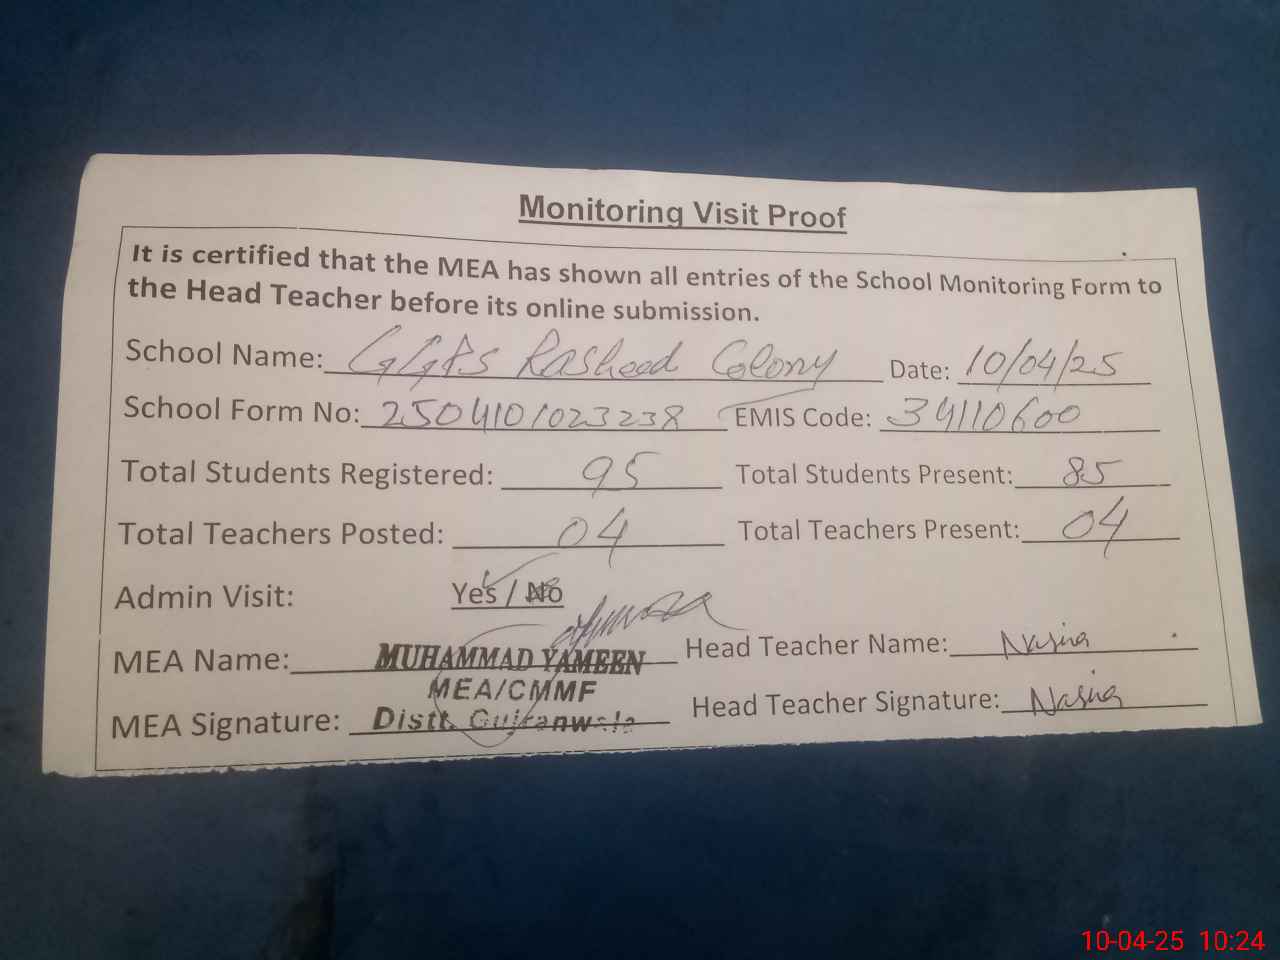 Monitoring Visit Proof
It is certified that the MEA has shown all entries of the School Monitoring Form to
the Head Teacher before its online submission.
School Name: GGPS Rasheed Colony Date: 10/04/25
School Form No: 2504101023238 EMIS Code: 34110600
Total Students Registered: 95 Total Students Present: 85
Total Teachers Posted: 04 Total Teachers Present: 04
Admin Visit: Yes / No
MEA Name: MUHAMMAD YAMEEN Head Teacher Name: Nasira
MEA/CMMF
MEA Signature: Distt. Gujranwala Head Teacher Signature: Nasira
10-04-25 10:24